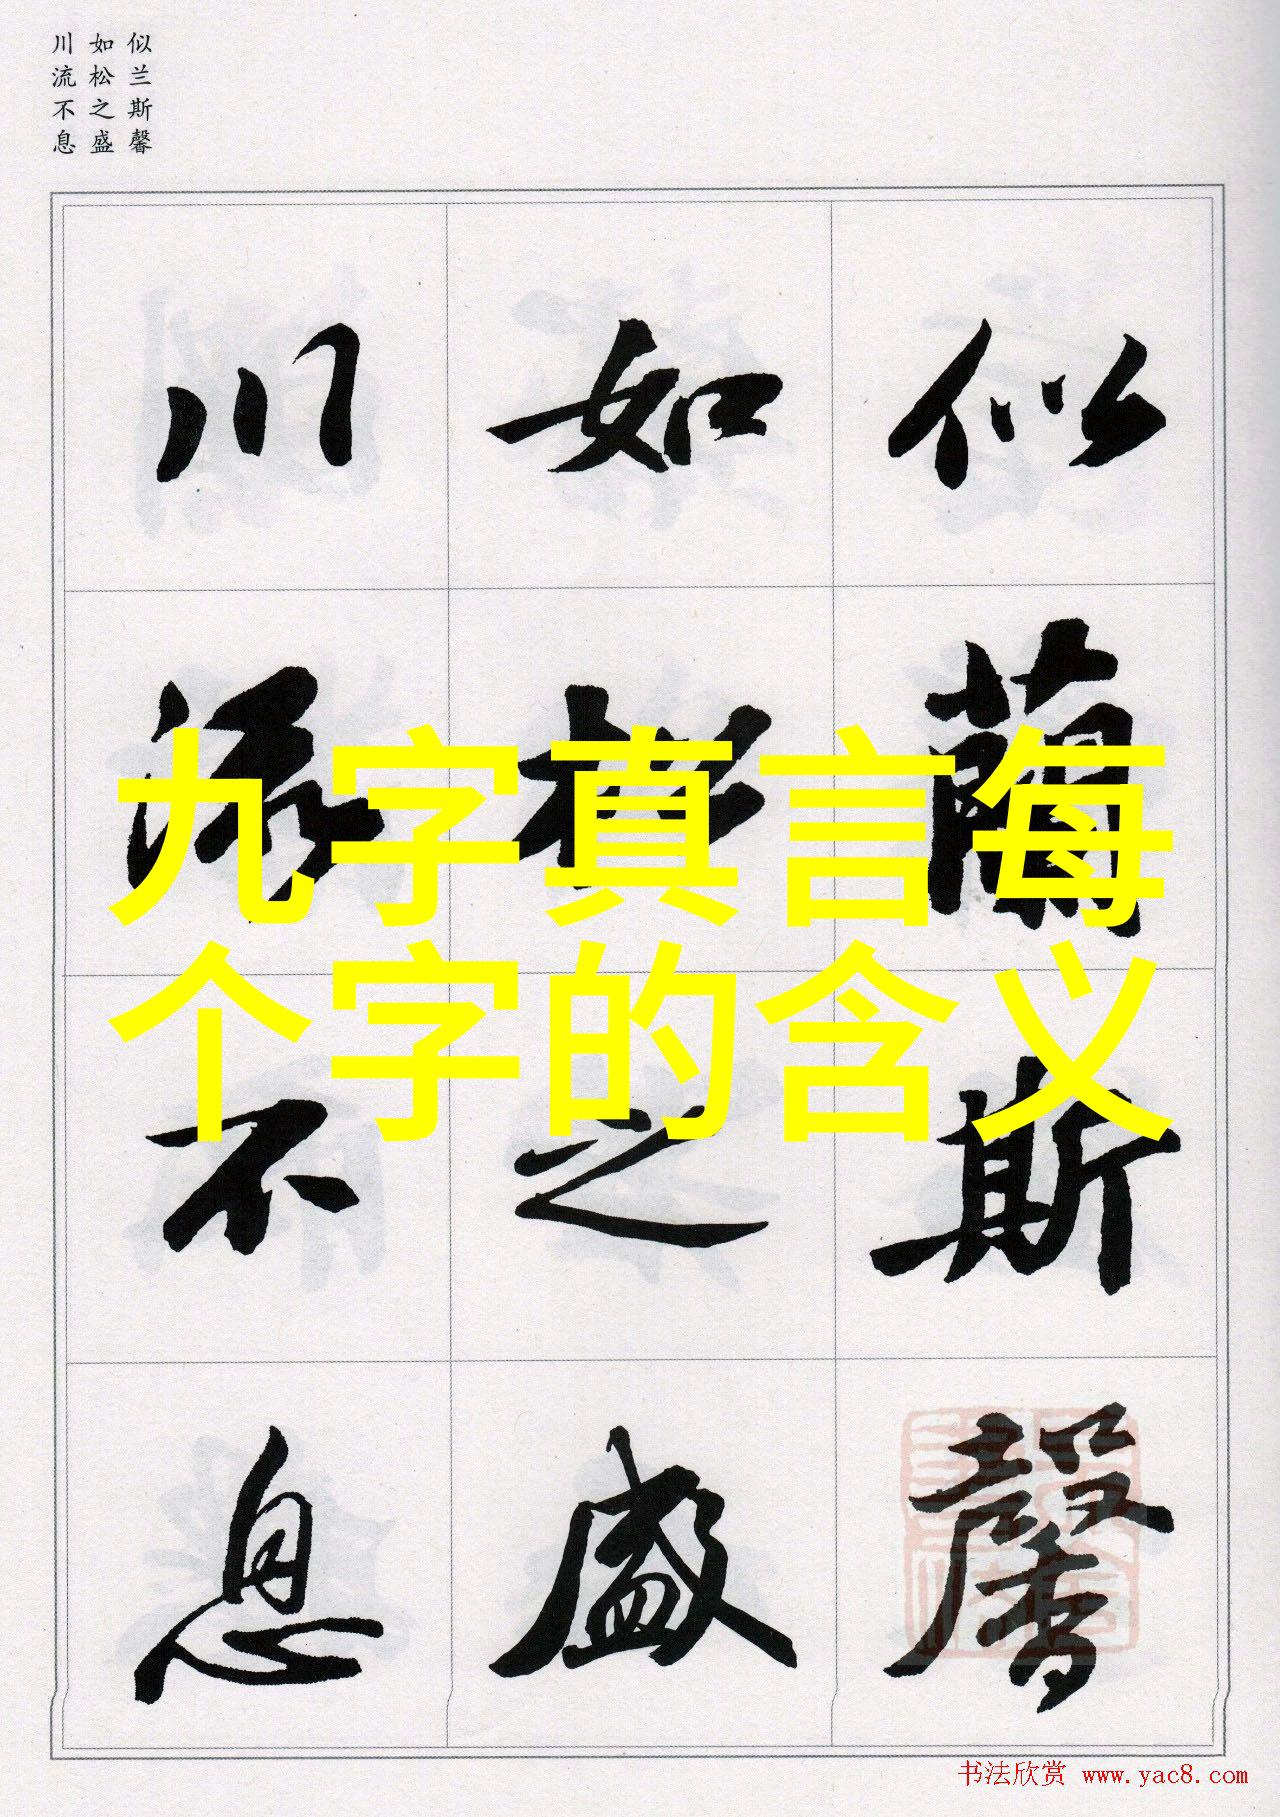 似兰斯馨
如松之盛
川流不息
似蘭斯馨
如松之盛
川流不息
九字真言每
个字的含义
书法欣赏 www.yac8.com